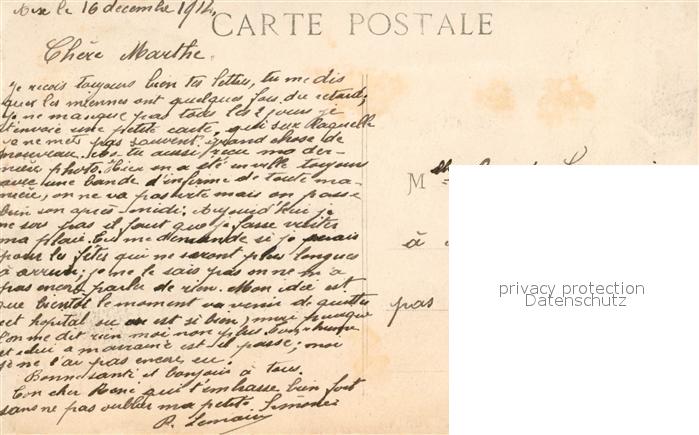 le 16 décembre 1914
CARTE POSTALE
Chère Marthe.
je reçois toujours bien tes lettres, tu me dis
que les miennes ont quelques fois du retard,
je ne manque pas tous les 2 jours je
t'envoie une petite carte, qui sur laquelle
je ne mets pas souvent grand chose de
nouveau. as tu aussi reçu ma der-
nière photo. Hier on a été en ville toujours
avec une bande d'infirme de toute ma-
nière, on ne va pas vite mais on passe
bien son après-midi. Aujourd'hui je
ne sors pas il faut que je fasse visiter
ma plaie. Tu me demande si je serais
pour les fêtes qui ne seront plus longues
à arriver, je ne le sais pas on ne m'a
pas encore parlé de rien. Mon idée est
que bientôt le moment va venir de quitter
cet hopital ou on est si bien, mais puisque
l'on me dit rien moi non plus. Ton rhume
et celui à marraine est il passé; moi
je ne l'ai pas encore eu.
Bonne santé et bonjour à tous.
Ton cher René qui t'embrasse bien fort
sans ne pas oublier ma petite Simone
R. Lemair
M
à
pas
privacy protection
Datenschutz